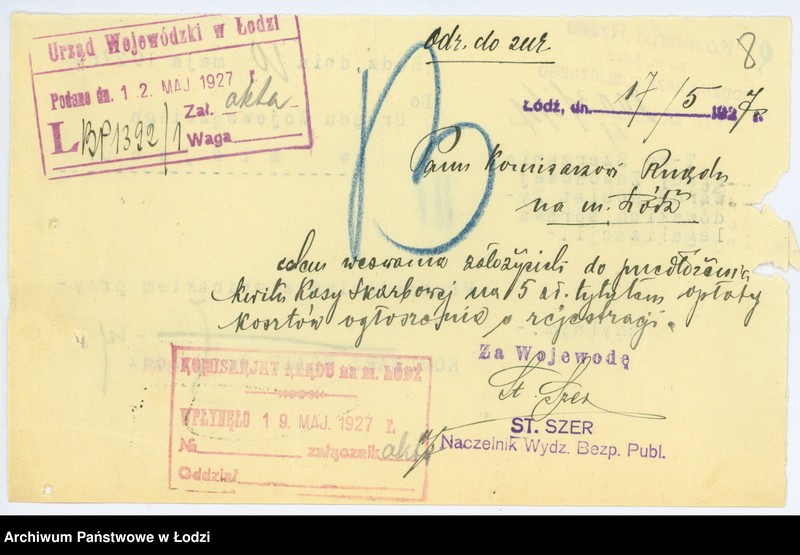 Urząd Wojewódzki w Łodzi
Podano dn. 12. MAJ. 1927 r.
L BP1392/1 Zał. akta
Waga
Odr. do zur
8
Łódź, dn. 17/5 1927 r.
Panu Komisarzowi Rządu
na m. Łódź
celem wezwania założycieli do przedłożenia
kwitu Kasy Skarbowej na 5 zł. tytułem opłaty
kosztów ogłoszenia o rejestracji.
Za Wojewodę
St. Szer
ST. SZER
Naczelnik Wydz. Bezp. Publ.
KOMISARJAT RZĄDU na m. ŁÓDŹ
WPŁYNĘŁO 19. MAJ. 1927 r.
№ załącznik akta
Oddział
Archiwum Państwowe w Łodzi